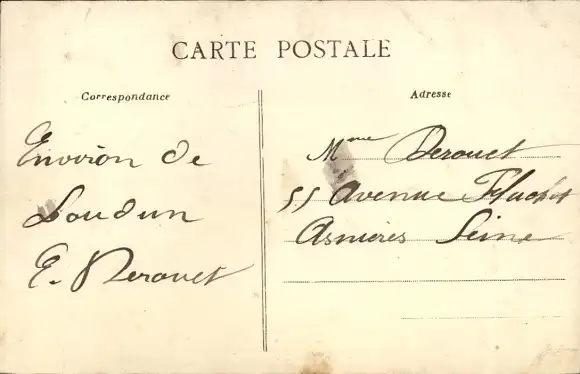 CARTE POSTALE
Correspondance
Environ de
Loudun
E. Derouet
Adresse
Mme Derouet
55 Avenue
Asnières Seine